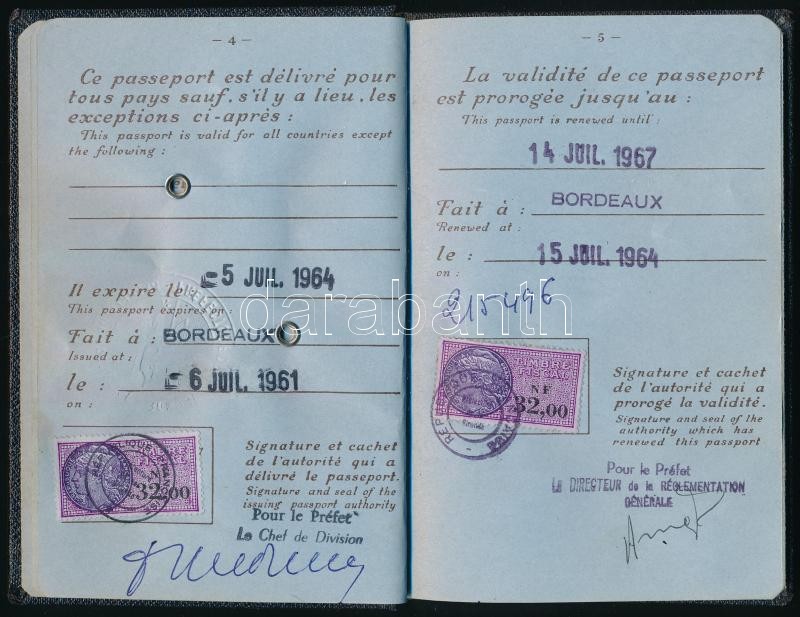 - 4 -
Ce passeport est délivré pour
tous pays sauf, s'il y a lieu, les
exceptions ci-après :
This passport is valid for all countries except
the following :
5 JUIL. 1964
Il expire le
This passport expires on :
Fait à : BORDEAUX
Issued at :
le : 6 JUIL. 1961
on :
32,00
Signature et cachet
de l'autorité qui a
délivré le passeport.
Signature and seal of the
issuing passport authority
Pour le Préfet
Le Chef de Division
- 5 -
La validité de ce passeport
est prorogée jusqu'au :
This passport is renewed until :
14 JUIL. 1967
Fait à : BORDEAUX
Renewed at :
le : 15 JUIL. 1964
on :
215496
TIMBRE
FISCAL
NF
32,00
Signature et cachet
de l'autorité qui a
prorogé la validité.
Signature and seal of the
authority which has
renewed this passport
Pour le Préfet
Le DIRECTEUR de la RÉGLEMENTATION
GÉNÉRALE
darabanth